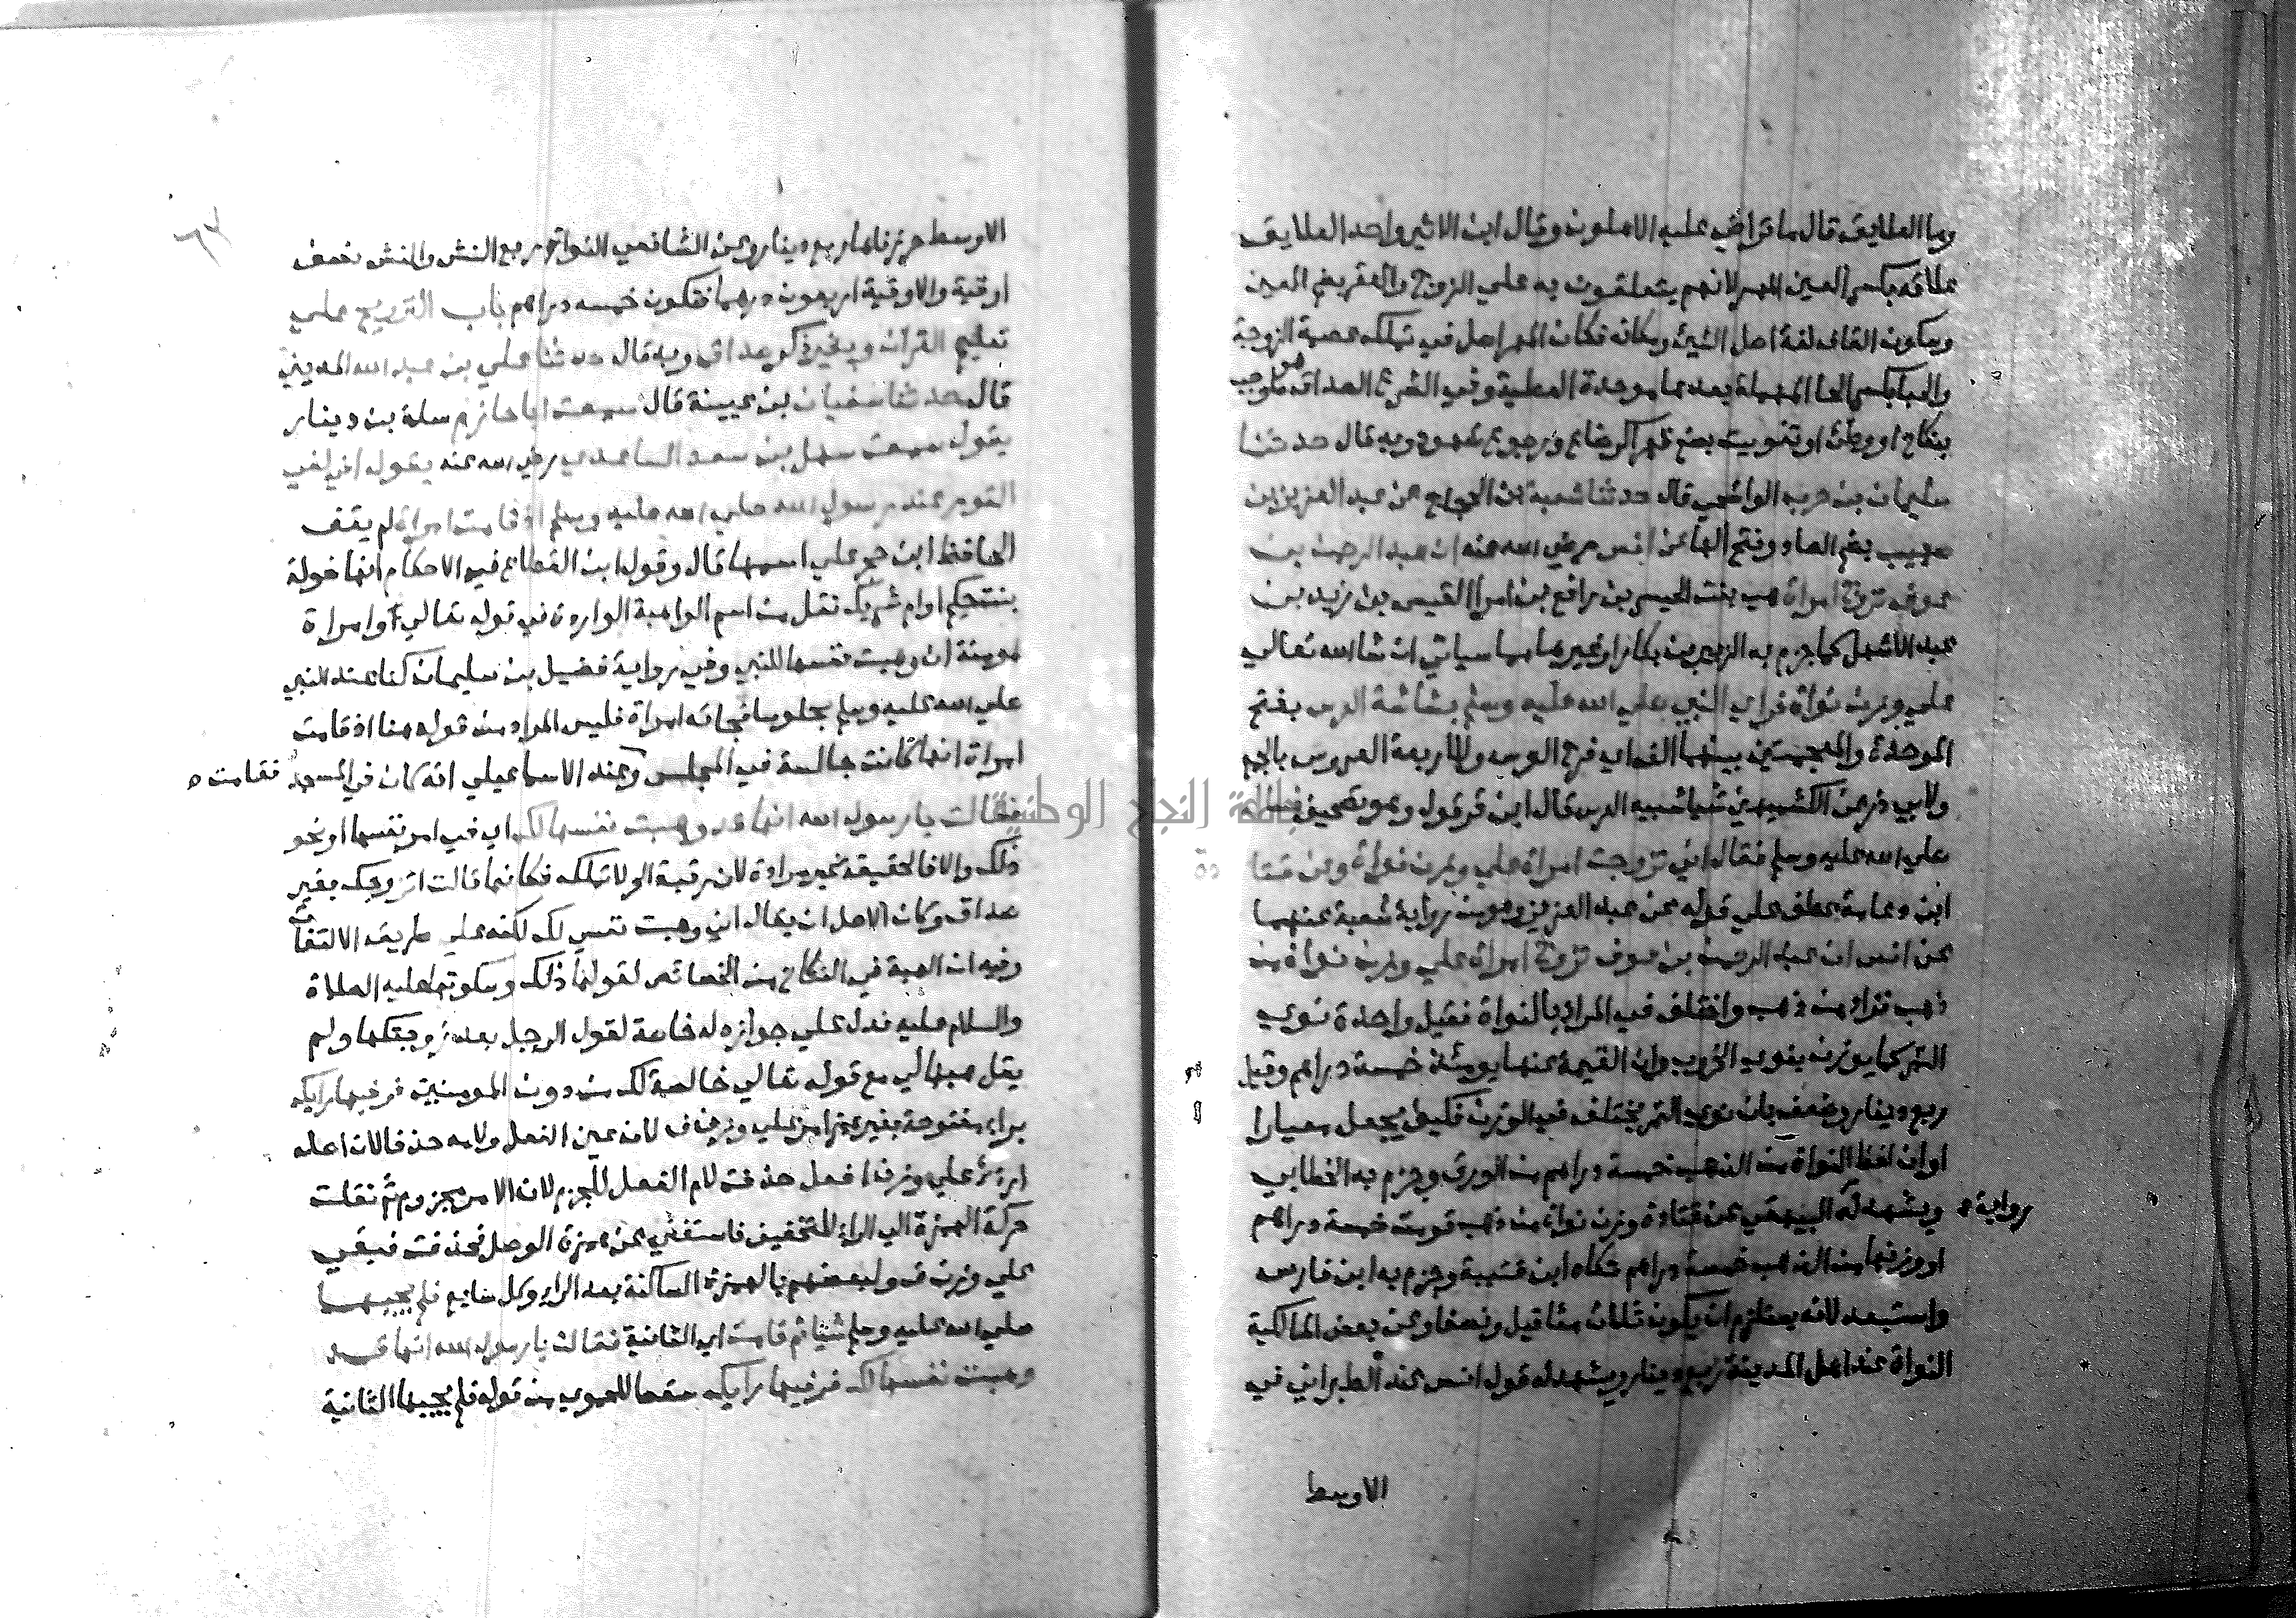 وما العلايق قال ما تراضي عليه الاهلون وقال ابن الاثير واحد العلايق
علاقه بكسر العين المهر لانهم يتعلقون به علي الزوج والعقر بضم العين
وسكون القاف لغة اصل الشيئ ومكانه فكان المهر اصل في تملكه عصمة الزوجة
والحبا بكسر الحا المهملة بعدها موحدة العطية وفي الشرع الصداق هو ما وجب
بنكاح او وطئ او تفويت بضع قهرا كرضاع ورجوع شهود وبه قال حدثنا
سليمان بن حرب الواشحي قال حدثنا شعبة بن الحجاج عن عبد العزيز بن
صهيب بضم الصاد وفتح الها عن انس رضي الله عنه ان عبد الرحمن بن
عوف تزوج امراة هي بنت الحيسر بن رافع بن امرا القيس بن زيد بن
عبد الاشهل كما جزم به الزبير بن بكار او غيرها مما سياتي ان شا الله تعالي
علي وزن نواة فراي النبي صلي الله عليه وسلم بشاشة العرس بفتح
الموحدة والمعجمتين بينهما الف اي فرح العرس وللاربعة العروس بالجمع
ولابي ذر عن الكشميهني شيا شبيه العرس قال ابن قرقول وهو تصحيف فساله
صلي الله عليه وسلم فقال اني تزوجت امراة علي وزن نواة وعن قتادة
ابن دعامة عطف علي قوله عن عبد العزيز وهو من رواية شعبة عنهما
عن انس ان عبد الرحمن بن عوف تزوج امراة علي وزن نواة من
ذهب فزاد من ذهب واختلف في المراد بالنواة فقيل واحدة نوي
التمر كما يوزن بنوي الخروب وان القيمة عنها يومئذ خمسة دراهم وقيل
ربع دينار وضعف بان نوي التمر يختلف في الوزن فكيف يجعل معيارا
او ان لفظ النواة من الذهب خمسة دراهم من الورق وجزم به الخطابي
ويشهد له رواية البيهقي عن قتادة وزن نواة من ذهب قومت خمسة دراهم
او وزنها من الذهب خمسة دراهم حكاه ابن قتيبة وجزم به ابن فارس
واستبعد لانه يستلزم ان يكون ثلاث مثاقيل ونصفا وعن بعض المالكية
النواة عند اهل المدينة ربع دينار ويشهد له قول انس عند الطبراني في
الاوسط
٦٣
الاوسط حزرناها ربع دينار وعن الشافعي النواة ربع النش والنش نصف
اوقية والاوقية اربعون درهما فتكون خمسه دراهم باب التزويج علي
تعليم القران وبغير ذكر صداق وبه قال حدثنا علي بن عبد الله المديني
قال حدثنا سفيان بن عيينة قال سمعت ابا حازم سلمة بن دينار
يقول سمعت سهل بن سعد الساعدي رضي الله عنه يقول اني لفي
القوم عند رسول الله صلي الله عليه وسلم اذ قامت امراة لم يقف
الحافظ ابن حجر علي اسمها قال وقول ابن القطاع في الاحكام انها خولة
بنت حكيم او ام شريك نقل من اسم الواهبة الواردة في قوله تعالي وامراة
مومنة ان وهبت نفسها للنبي وفي رواية فضيل بن سليمان كنا عند النبي
صلي الله عليه وسلم جلوسا فجاته امراة فليس المراد من قوله هنا اذ قامت
امراة انها كانت جالسة في المجلس وعند الاسماعيلي انه كان في المسجد فقامت
فقالت يا رسول الله انها قد وهبت نفسها لك اي في امر نفسها او نحو
ذلك والا فالحقيقة غير مرادة لان رقبة الحر لا تملك فكانها قالت اتزوجك بغير
صداق وكان الاصل ان يقال اني وهبت نفسي لك لكنه علي طريق الالتفات
وفيه ان الهبة في النكاح من الخصائص لقولها ذلك وسكوته عليه الصلاة
والسلام عليه فدل علي جوازه له خاصة لقول الرجل بعد زوجنيها ولم
يقل هبها لي مع قوله تعالي خالصة لك من دون المومنين فر فيها رايك
براء مفتوحة بغير همز امر علي وزن ف لان عين الفعل ولامه حذفا لان اصله
ارء علي وزن افعل حذفت لام الفعل للجزم لان الامر مجزوم ثم نقلت
حركة الهمزة الي الراء للتخفيف فاستغني عن همزة الوصل فحذفت فبقي
علي وزن ف ولبعضهم بالهمزة الساكنة بعد الراء وكل سايغ فلم يجبها
صلي الله عليه وسلم شيئا ثم قامت اي الثانية فقالت يا رسول الله انها قد
وهبت نفسها لك فر فيها رايك سقط للحموي من قوله فلم يجبها الثانية
جامعة النجاح الوطنية